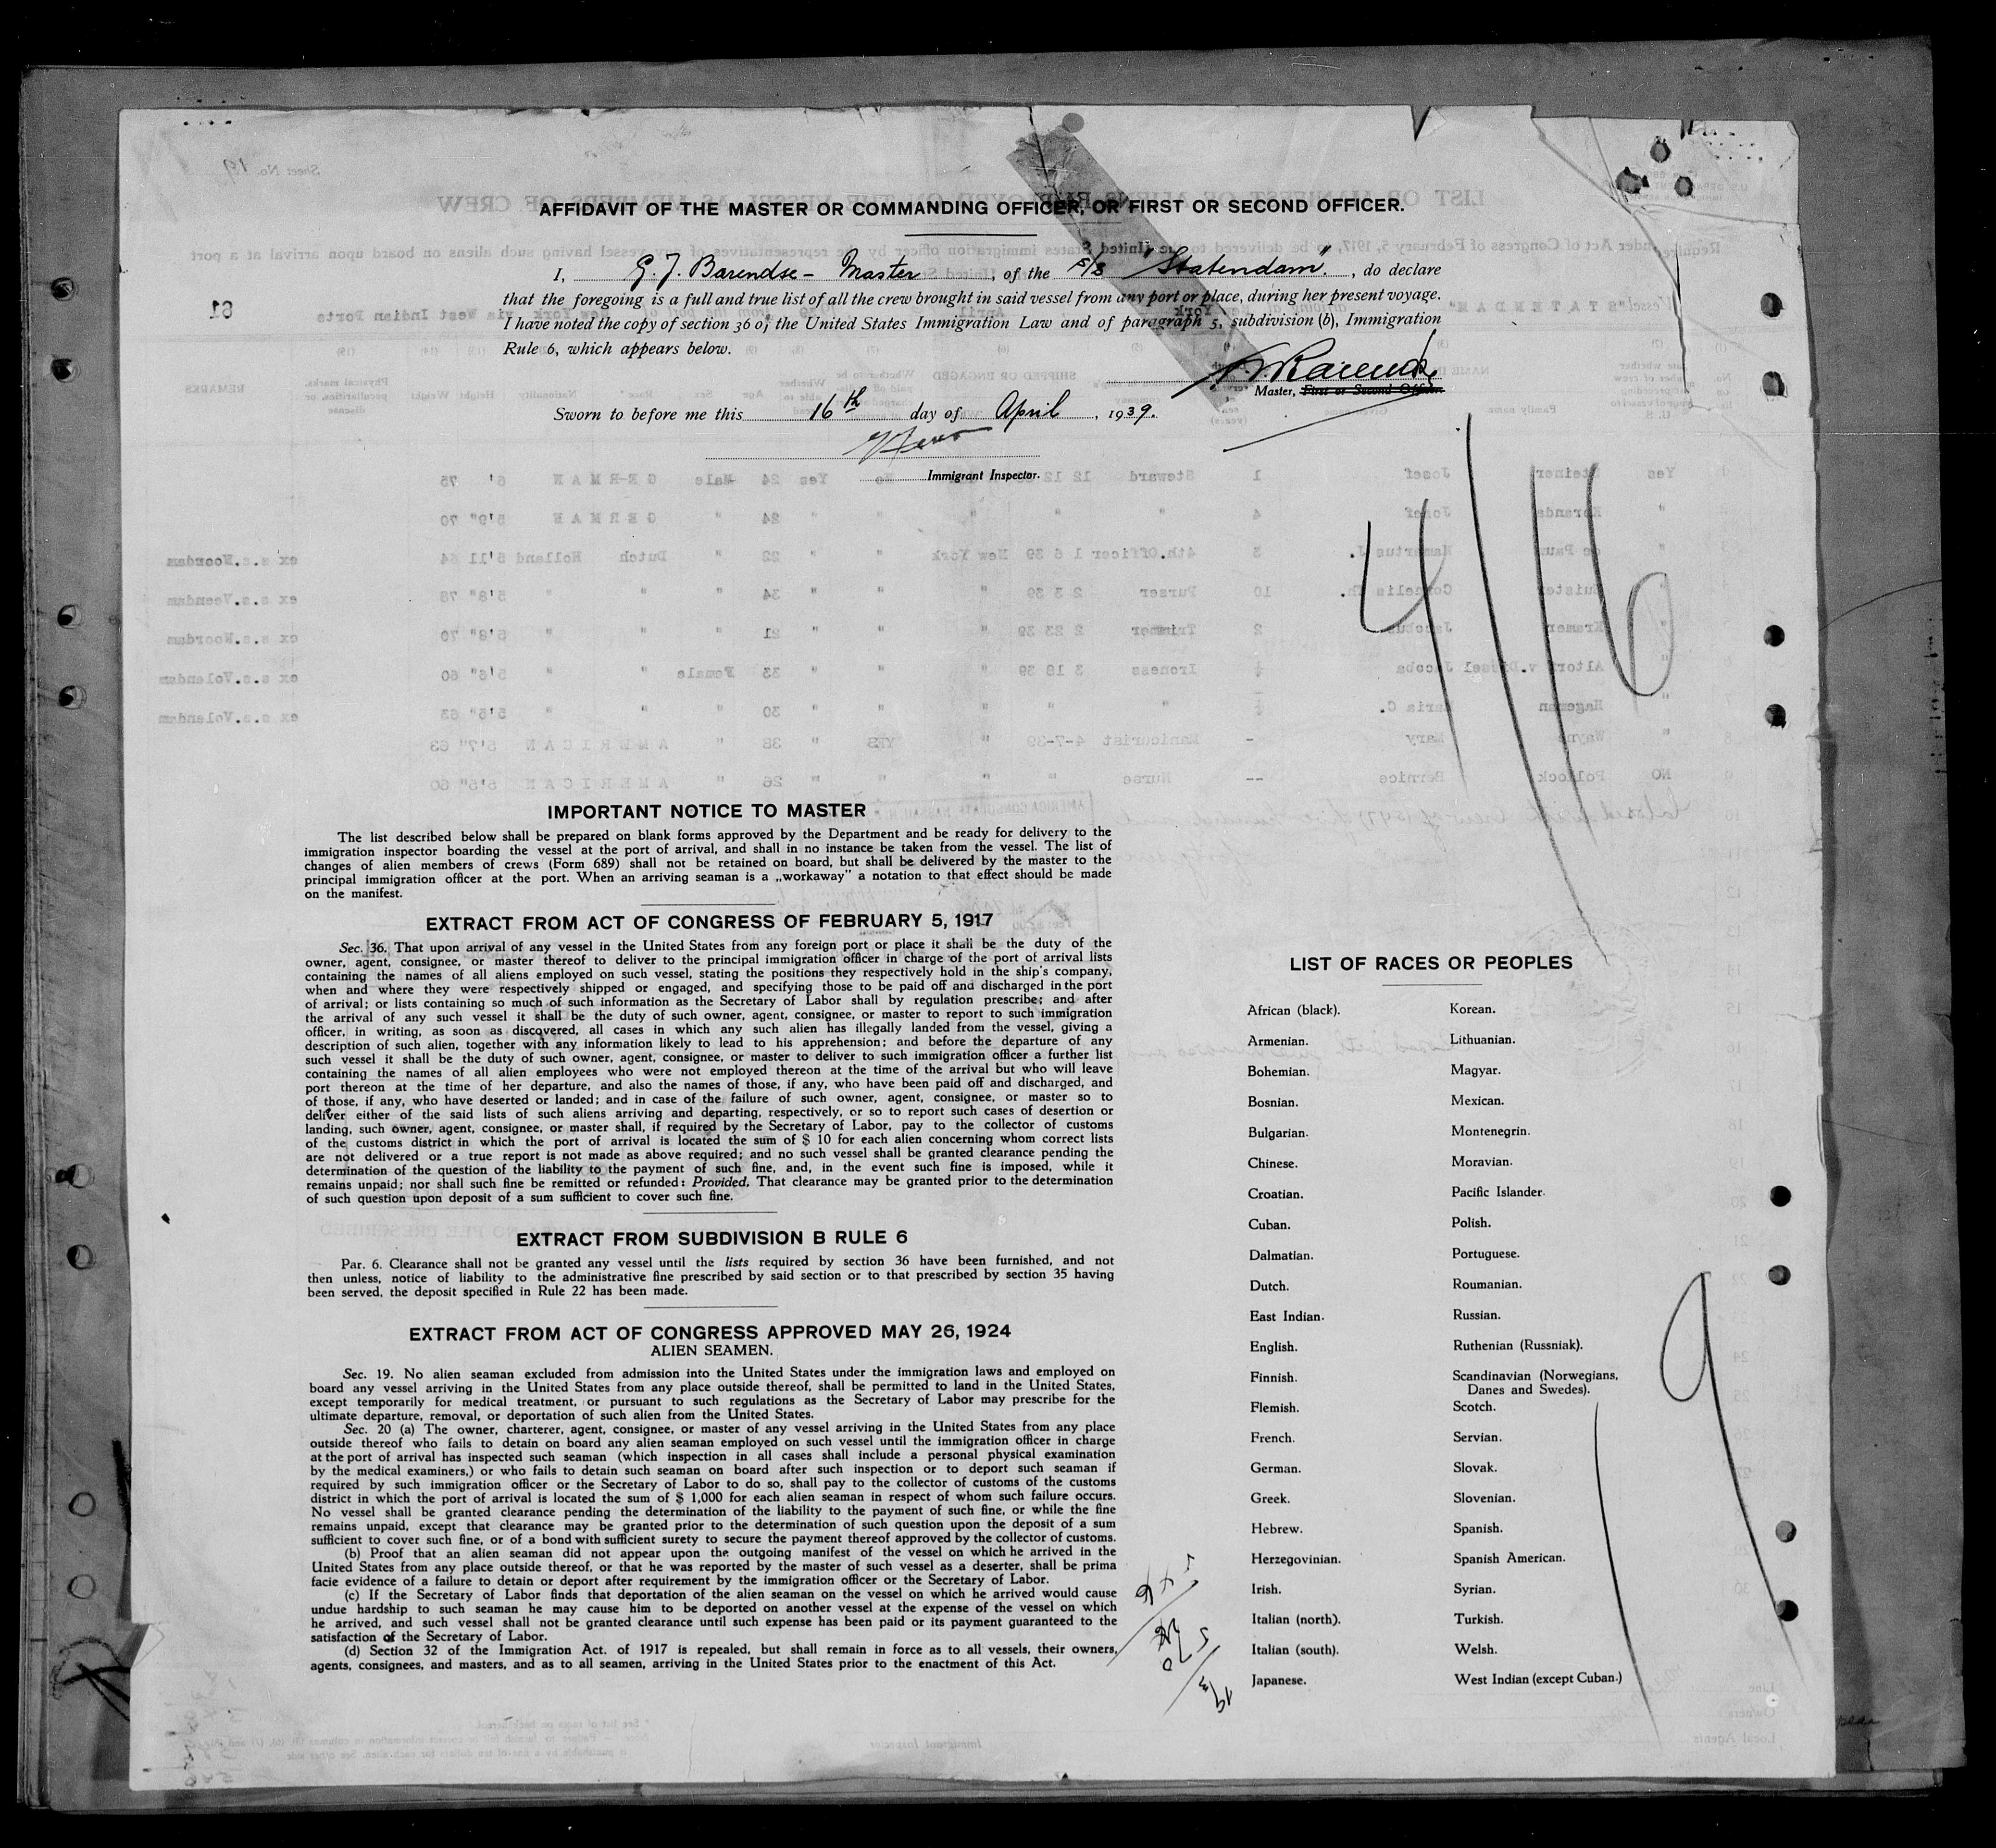 AFFIDAVIT OF THE MASTER OR COMMANDING OFFICER, OR FIRST OR SECOND OFFICER.
I, G. J. Barendse - Master, of the s/s "Statendam", do declare
that the foregoing is a full and true list of all the crew brought in said vessel from any port or place, during her present voyage.
I have noted the copy of section 36 of the United States Immigration Law and of paragraph 5, subdivision (b), Immigration
Rule 6, which appears below.
Master, First or Second Officer.
Sworn to before me this 16th day of April, 1939.
Immigrant Inspector.
416
IMPORTANT NOTICE TO MASTER
The list described below shall be prepared on blank forms approved by the Department and be ready for delivery to the
immigration inspector boarding the vessel at the port of arrival, and shall in no instance be taken from the vessel. The list of
changes of alien members of crews (Form 689) shall not be retained on board, but shall be delivered by the master to the
principal immigration officer at the port. When an arriving seaman is a „workaway" a notation to that effect should be made
on the manifest.
EXTRACT FROM ACT OF CONGRESS OF FEBRUARY 5, 1917
Sec. 36. That upon arrival of any vessel in the United States from any foreign port or place it shall be the duty of the
owner, agent, consignee, or master thereof to deliver to the principal immigration officer in charge of the port of arrival lists
containing the names of all aliens employed on such vessel, stating the positions they respectively hold in the ship's company,
when and where they were respectively shipped or engaged, and specifying those to be paid off and discharged in the port
of arrival; or lists containing so much of such information as the Secretary of Labor shall by regulation prescribe; and after
the arrival of any such vessel it shall be the duty of such owner, agent, consignee, or master to report to such immigration
officer, in writing, as soon as discovered, all cases in which any such alien has illegally landed from the vessel, giving a
description of such alien, together with any information likely to lead to his apprehension; and before the departure of any
such vessel it shall be the duty of such owner, agent, consignee, or master to deliver to such immigration officer a further list
containing the names of all alien employees who were not employed thereon at the time of the arrival but who will leave
port thereon at the time of her departure, and also the names of those, if any, who have been paid off and discharged, and
of those, if any, who have deserted or landed; and in case of the failure of such owner, agent, consignee, or master so to
deliver either of the said lists of such aliens arriving and departing, respectively, or so to report such cases of desertion or
landing, such owner, agent, consignee, or master shall, if required by the Secretary of Labor, pay to the collector of customs
of the customs district in which the port of arrival is located the sum of $ 10 for each alien concerning whom correct lists
are not delivered or a true report is not made as above required; and no such vessel shall be granted clearance pending the
determination of the question of the liability to the payment of such fine, and, in the event such fine is imposed, while it
remains unpaid; nor shall such fine be remitted or refunded: Provided, That clearance may be granted prior to the determination
of such question upon deposit of a sum sufficient to cover such fine.
EXTRACT FROM SUBDIVISION B RULE 6
Par. 6. Clearance shall not be granted any vessel until the lists required by section 36 have been furnished, and not
then unless, notice of liability to the administrative fine prescribed by said section or to that prescribed by section 35 having
been served, the deposit specified in Rule 22 has been made.
EXTRACT FROM ACT OF CONGRESS APPROVED MAY 26, 1924
ALIEN SEAMEN.
Sec. 19. No alien seaman excluded from admission into the United States under the immigration laws and employed on
board any vessel arriving in the United States from any place outside thereof, shall be permitted to land in the United States,
except temporarily for medical treatment, or pursuant to such regulations as the Secretary of Labor may prescribe for the
ultimate departure, removal, or deportation of such alien from the United States.
Sec. 20 (a) The owner, charterer, agent, consignee, or master of any vessel arriving in the United States from any place
outside thereof who fails to detain on board any alien seaman employed on such vessel until the immigration officer in charge
at the port of arrival has inspected such seaman (which inspection in all cases shall include a personal physical examination
by the medical examiners,) or who fails to detain such seaman on board after such inspection or to deport such seaman if
required by such immigration officer or the Secretary of Labor to do so, shall pay to the collector of customs of the customs
district in which the port of arrival is located the sum of $ 1,000 for each alien seaman in respect of whom such failure occurs.
No vessel shall be granted clearance pending the determination of the liability to the payment of such fine, or while the fine
remains unpaid, except that clearance may be granted prior to the determination of such question upon the deposit of a sum
sufficient to cover such fine, or of a bond with sufficient surety to secure the payment thereof approved by the collector of customs.
(b) Proof that an alien seaman did not appear upon the outgoing manifest of the vessel on which he arrived in the
United States from any place outside thereof, or that he was reported by the master of such vessel as a deserter, shall be prima
facie evidence of a failure to detain or deport after requirement by the immigration officer or the Secretary of Labor.
(c) If the Secretary of Labor finds that deportation of the alien seaman on the vessel on which he arrived would cause
undue hardship to such seaman he may cause him to be deported on another vessel at the expense of the vessel on which
he arrived, and such vessel shall not be granted clearance until such expense has been paid or its payment guaranteed to the
satisfaction of the Secretary of Labor.
(d) Section 32 of the Immigration Act. of 1917 is repealed, but shall remain in force as to all vessels, their owners,
agents, consignees, and masters, and as to all seamen, arriving in the United States prior to the enactment of this Act.
LIST OF RACES OR PEOPLES
African (black).
Armenian.
Bohemian.
Bosnian.
Bulgarian.
Chinese.
Croatian.
Cuban.
Dalmatian.
Dutch.
East Indian.
English.
Finnish.
Flemish.
French.
German.
Greek.
Hebrew.
Herzegovinian.
Irish.
Italian (north).
Italian (south).
Japanese.
Korean.
Lithuanian.
Magyar.
Mexican.
Montenegrin.
Moravian.
Pacific Islander.
Polish.
Portuguese.
Roumanian.
Russian.
Ruthenian (Russniak).
Scandinavian (Norwegians,
Danes and Swedes).
Scotch.
Servian.
Slovak.
Slovenian.
Spanish.
Spanish American.
Syrian.
Turkish.
Welsh.
West Indian (except Cuban.)